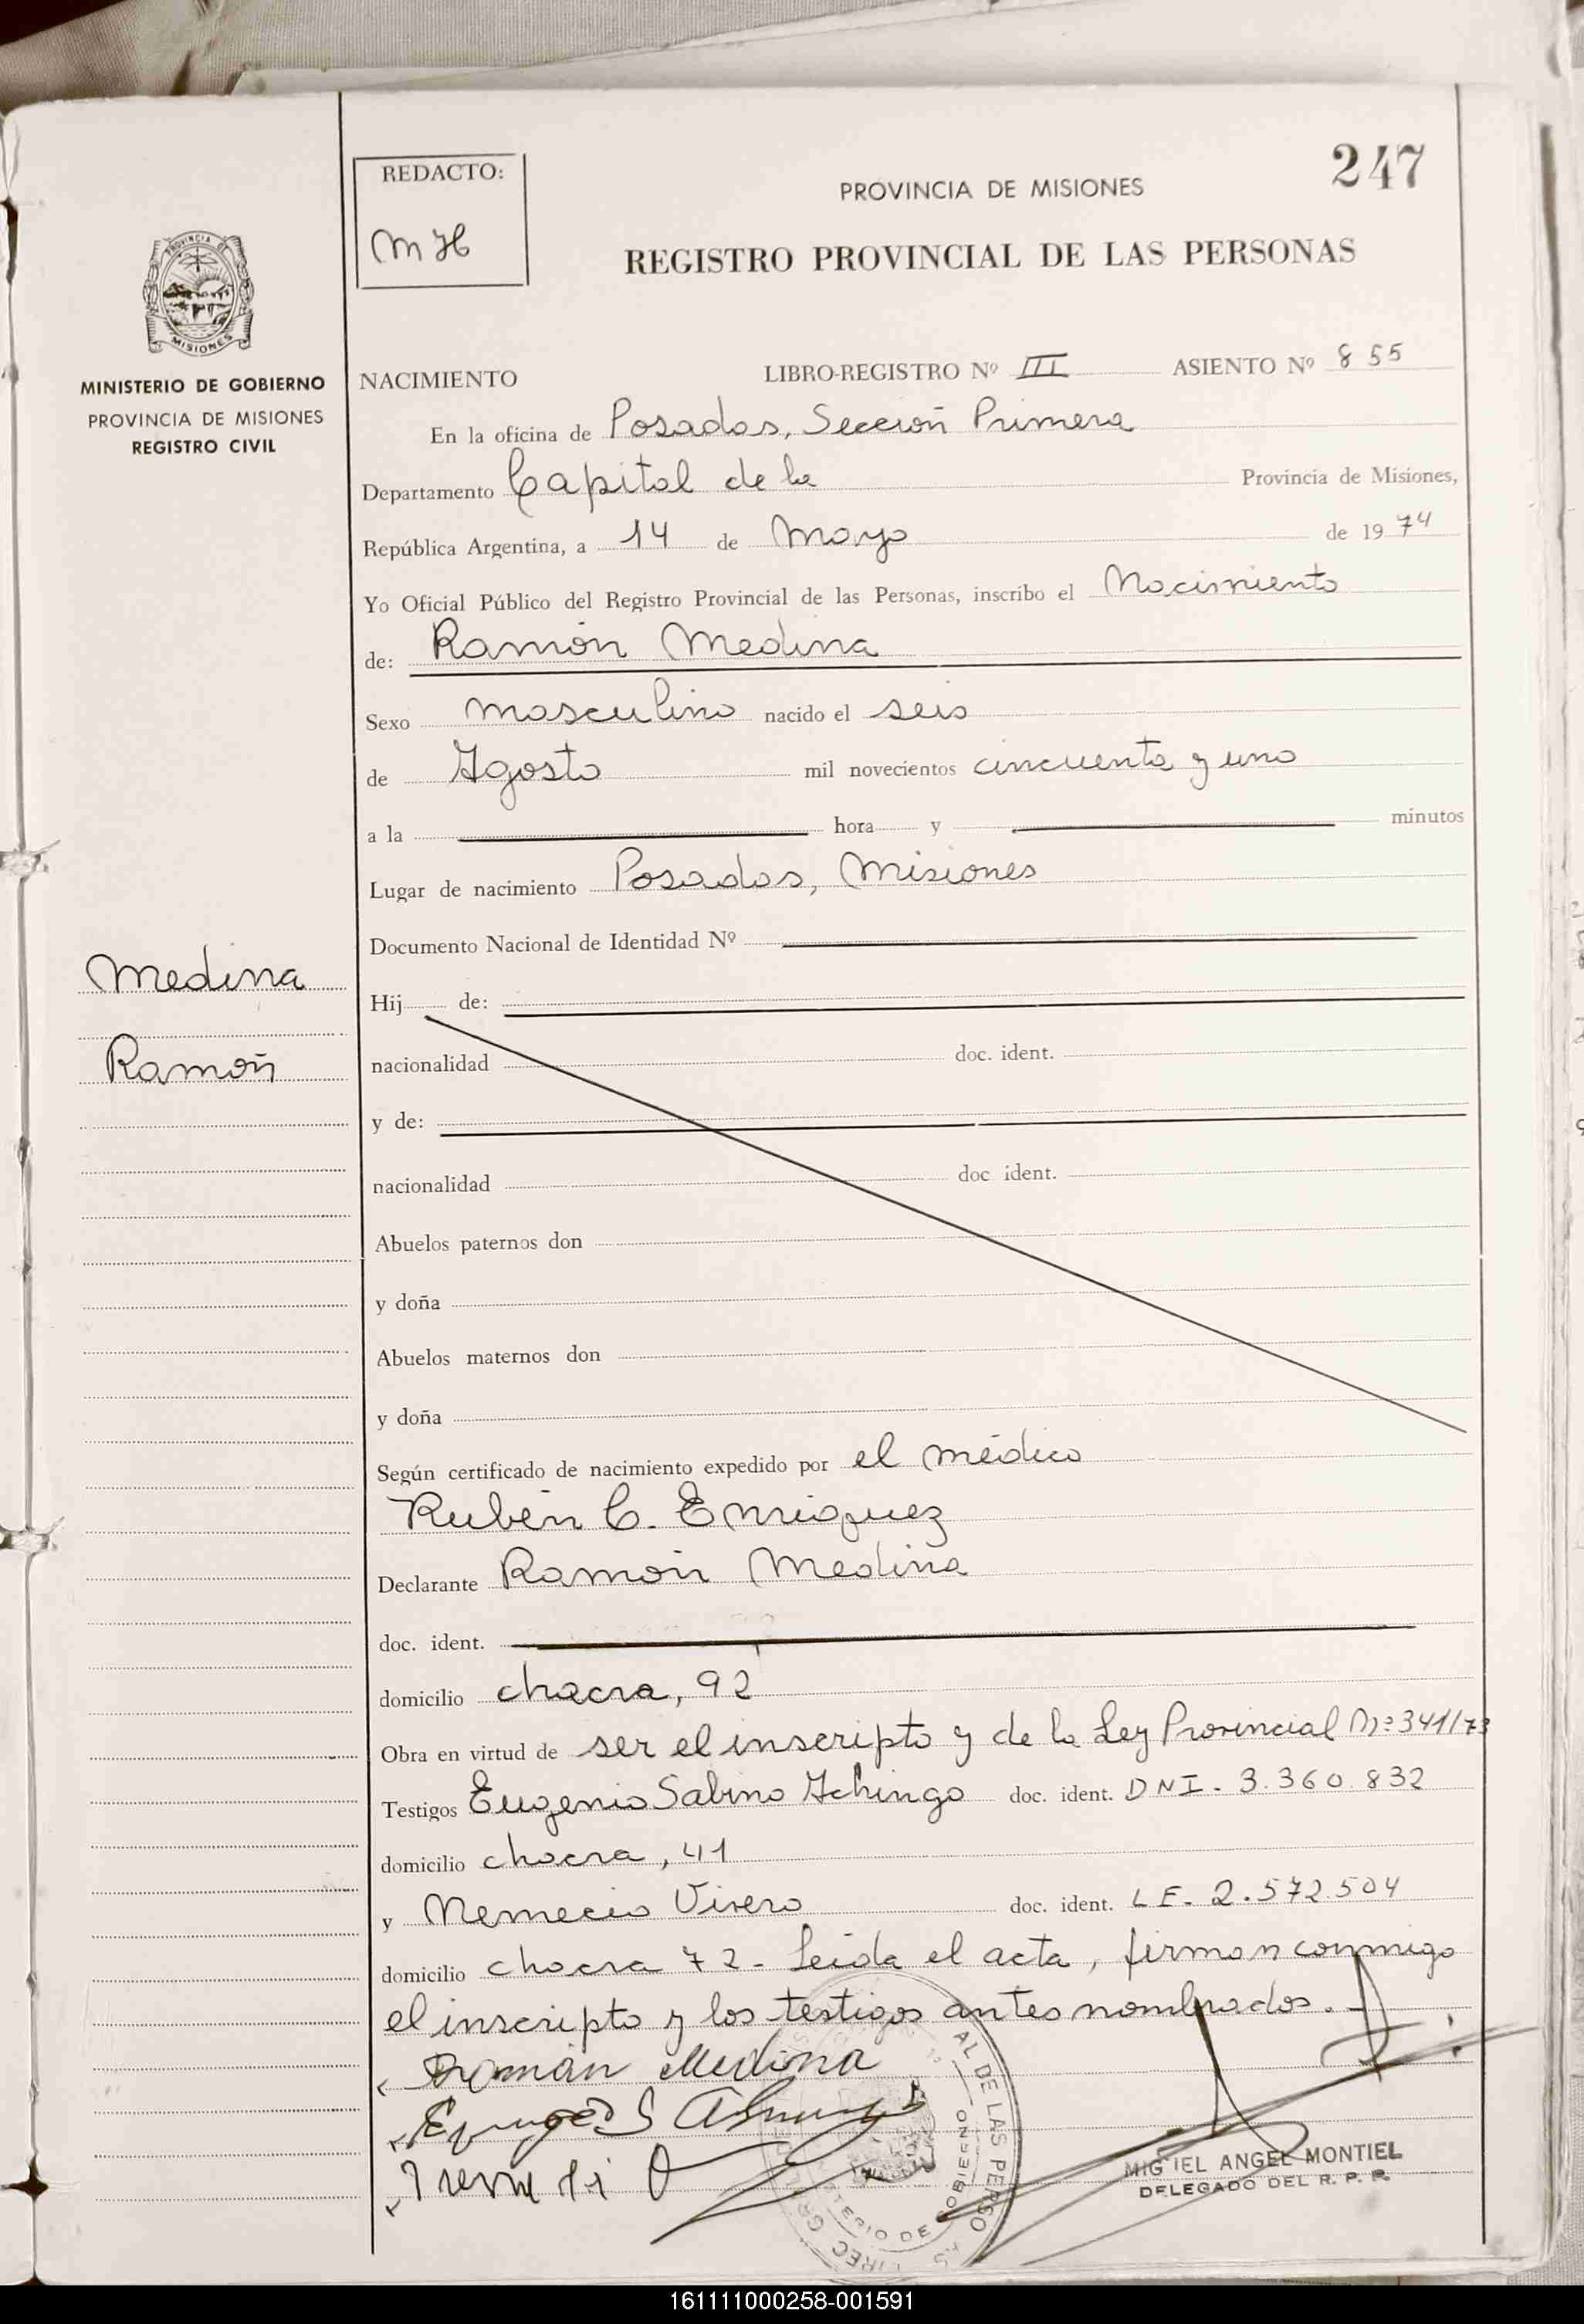 247
REDACTO:
MH
PROVINCIA DE MISIONES
REGISTRO PROVINCIAL DE LAS PERSONAS
PROVINCIA DE
MISIONES
MINISTERIO DE GOBIERNO
PROVINCIA DE MISIONES
REGISTRO CIVIL
NACIMIENTO LIBRO-REGISTRO Nº III ASIENTO Nº 855
En la oficina de Posadas, Sección Primera
Departamento Capital de la Provincia de Misiones,
República Argentina, a 14 de Mayo de 1974
Yo Oficial Público del Registro Provincial de las Personas, inscribo el Nacimiento
de: Ramón Medina
Sexo masculino nacido el seis
de Agosto mil novecientos cincuenta y uno
a la hora y minutos
Lugar de nacimiento Posadas, Misiones
Documento Nacional de Identidad Nº
Medina
Hij de:
Ramón
nacionalidad doc. ident.
y de:
nacionalidad doc ident.
Abuelos paternos don
y doña
Abuelos maternos don
y doña
Según certificado de nacimiento expedido por el médico
Rubén C. Enriquez
Declarante Ramón Medina
doc. ident.
domicilio chacra, 92
Obra en virtud de ser el inscripto y de la Ley Provincial Nº 341/73
Testigos Eugenio Sabino doc. ident. DNI. 3.360.832
domicilio chacra, 41
y Nemecio Vivero doc. ident. LE. 2.572.504
domicilio chacra 72- Leida el acta, firman conmigo
el inscripto y los testigos antes nombrados.
Román Medina
MIGUEL ANGEL MONTIEL
DELEGADO DEL R. P. P.
161111000258-001591